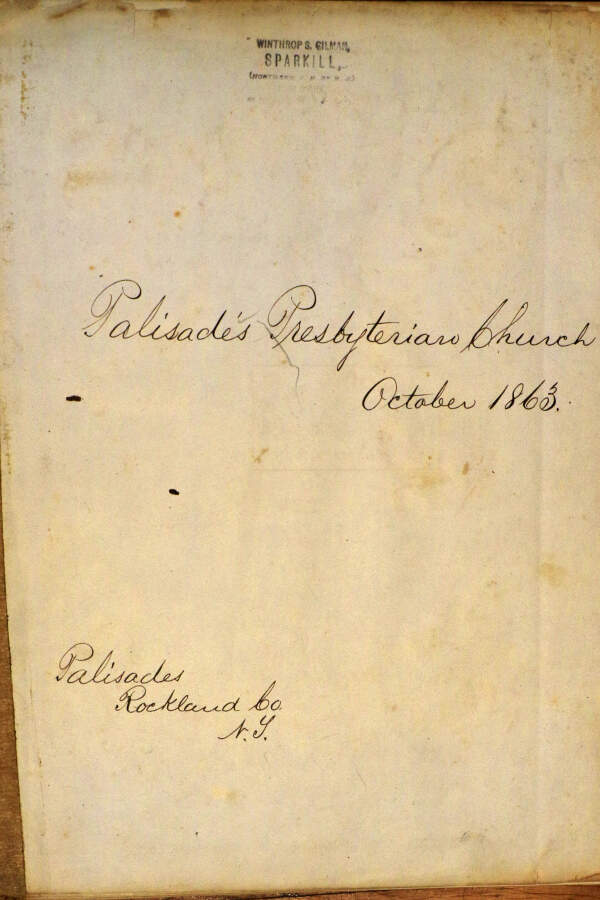 WINTHROP S. GILMAN,
SPARKILL,
Palisades Presbyterian Church
October 1863.
Palisades
Rockland Co
N.Y.